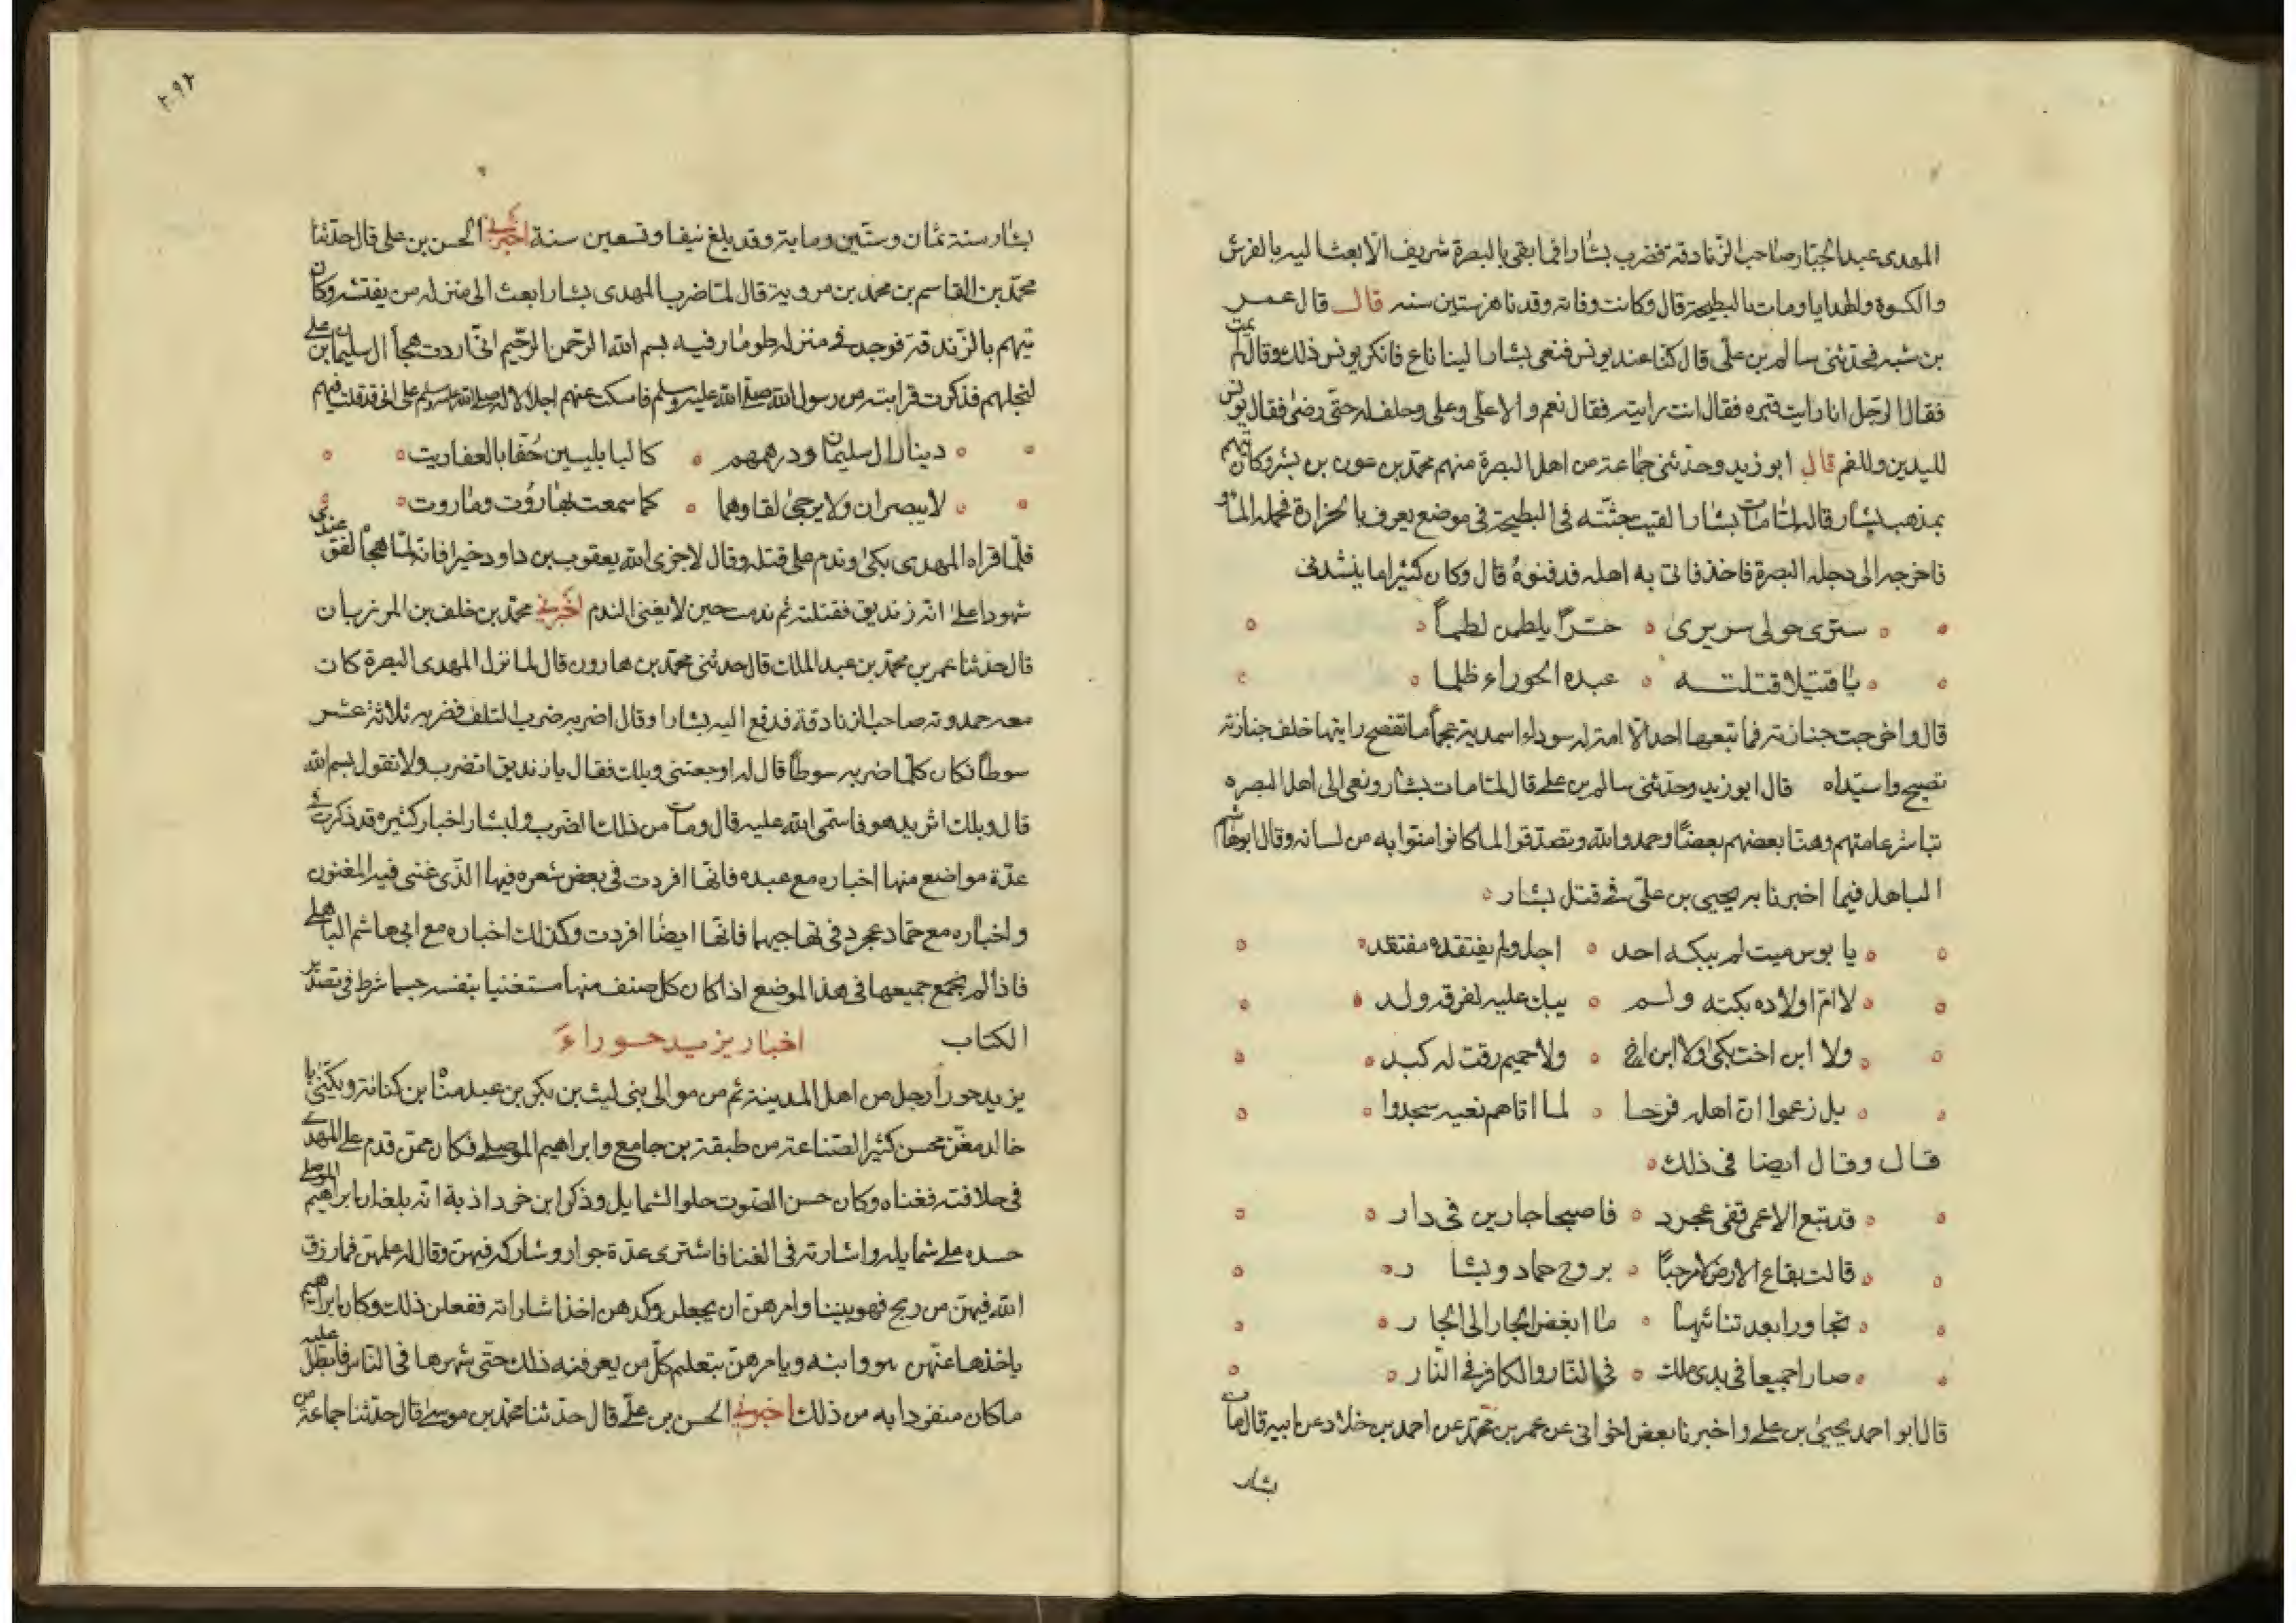 المهدى عبد الجبار صاحب الزنادقة فضرب بشارا فما بقى بالبصرة شريف الا بعث اليه بالفرش
والكسوة والهدايا ومات بالبطيحة قال وكانت وفاته وقد ناهز ستين سنه قال قال عمر
بن شبه فحدثنى سالم بن على قال كنا عند يونس فنعى بشارا الينا ناع فانكر يونس ذلك وقال لم يمت
فقال الرجل انا رايت قبره فقال انت رايته فقال نعم والا على وعلى وحلف له حتى رضى فقال يونس
لليدين وللفم قال ابو زيد وحدثنى جماعة من اهل البصرة منهم محمد بن عون بن بشر وكان يتهم
بمذهب بشار قال لما مات بشار القيت جثته فى البطيحة فى موضع يعرف بالخرارة فحمله الماء
فاخرجه الى دجله البصرة فاخذ فاتى به اهله فدفنوه قال وكان كثيرا ما ينشدنى
سترى حولى سريرى ه حسرا يلطمن لطما
يا قتيلا قتلته ه عبده الحوراء ظلما
قال واخرجت جنازته فما تبعها احد الا امة له سوداء سندية عجماء ما تفصح رايتها خلف جنازته
تصيح واسيداه قال ابو زيد وحدثنى سالم بن على قال لما مات بشار ونعى الى اهل البصره
تباشر عامتهم وهنا بعضهم بعضا وحمدوا الله وتصدقوا لما كانوا منوا به من لسانه وقال ابو هاشم
الباهلى فيما اخبرنا به يحيى بن على فى قتل بشار
يا بوس ميت لم يبكه احد ه اجل ولم يفتقده مفتقد
لا ام اولاده بكته ولم ه يبك عليه لفرقه ولد
ولا ابن اخت بكى ولا ابن اخ ه ولا حميم رقت له كبد
بل زعموا ان اهله فرحا ه لما اتاهم نعيه سجدوا
قال وقال ايضا فى ذلك
قد تبع الاعمى قفى عجرد ه فاصبحا جارين فى دار
قالت بقاع الارض لا مرحبا ه بروح حماد وبشار
تجاورا بعد تنائيهما ه ما ابغض الجار الى الجار
صارا جميعا فى يدى ملك ه فى النار والكافر فى النار
قال ابو احمد يحيى بن على واخبرنا بعض اخوانى عن عمر بن محمد عن احمد بن خلاد عن ابيه قال مات
بشار
بشار سنة ثمان وستين وماية وقد بلغ نيفا وتسعين سنة اخبرنى الحسن بن على قال حدثنا
محمد بن القاسم بن محمد بن مروية قال لما ضرب المهدى بشارا بعث الى منزله من يفتشه وكان
يتهم بالزندقة فوجد فى منزله طومار فيه بسم الله الرحمن الرحيم انى اردت هجاء ال سليمان بن على
لبخلهم فذكرت قرابته من رسول الله صلى الله عليه وسلم فامسكت عنهم اجلالا له صلى الله عليه وسلم على انى قد قلت فيهم
دينار ال سليمان ودرهمهم ه كالبابليين حفا بالعفاريت
لا يبصران ولا يرجى لقاوهما ه كما سمعت بهاروت وماروت
فلما قراه المهدى بكى وندم على قتله وقال لا جزى الله يعقوب بن داود خيرا فانه لما هجاه لفق عندى
شهودا على انه زنديق فقتلته ثم ندمت حين لا يغنى الندم اخبرنى محمد بن خلف بن المرزبان
قال حدثنا عمر بن محمد بن عبد الملك قال حدثنى محمد بن هارون قال لما نزل المهدى البصرة كان
معه حمدويه صاحب الزنادقة فدفع اليه بشارا وقال اضربه ضرب التلف فضربه ثلاثة عشر
سوطا فكان كلما ضربه سوطا قال له اوجعتنى ويلك فقال يا زنديق اتضرب ولا تقول بسم الله
قال ويلك اثريد هو فاسمى الله عليه قال ومات من ذلك الضرب ولبشار اخبار كثيره قد ذكرت فى
عدة مواضع منها اخباره مع عبده فانها افردت فى بعض شعره فيها الذى غنى فيه المغنون
واخباره مع حماد عجرد فى تهاجيهما فانها ايضا افردت وكذلك اخباره مع ابى هاشم الباهلى
فاذا لم تجمع جميعها فى هذا الموضع اذا كان كل صنف منها مستغنيا بنفسه حسبما شرط فى تصدير
الكتاب اخبار يزيد حوراء
يزيد حوراء رجل من اهل المدينة ثم من موالى بنى ليث بن بكر بن عبد مناة بن كنانة ويكنى ابا
خالد مغن محسن كثير الصناعة من طبقة بن جامع وابراهيم الموصلى فكان ممن قدم على المهدى
فى خلافته فغناه وكان حسن الصوت حلو الشمايل وذكر ابن خرداذبة انه بلغه ان ابراهيم الموصلى
حسده على شمايله واشارته فى الغنا فاشترى عدة جوار وشاركه فيهن وقال له علمهن فما رزق
الله فيهن من ربح فهو بيننا وامرهن ان يجعلن وكدهن اخذ اشاراته ففعلن ذلك وكان ابراهيم
ياخذها عنهن هو وابنه ويامرهن بتعليم كل من يعرفنه ذلك حتى شهرها فى الناس فابطل عليه
ما كان منفردا به من ذلك اخبرنى الحسن بن على قال حدثنا محمد بن موسى قال حدثنا جماعة من